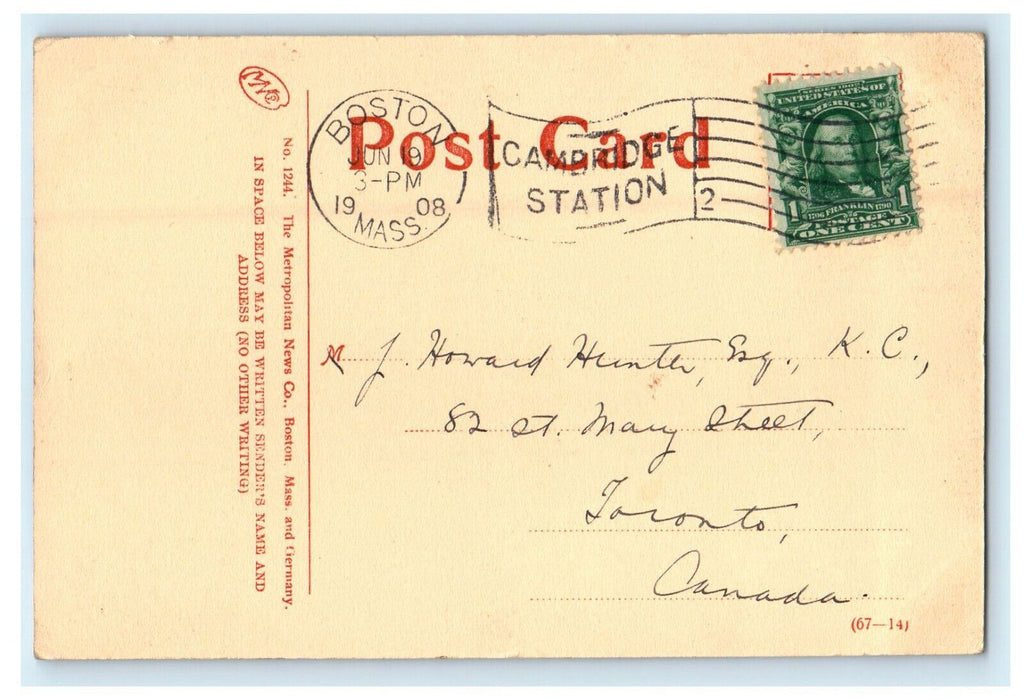 Post Card
BOSTON
JUN 19
3-PM
19 08
MASS.
CAMBRIDGE
STATION
2
SERIES 1902
UNITED STATES OF
AMERICA
1 1
1706 FRANKLIN 1790
POSTAGE
ONE CENT
No. 1244. The Metropolitan News Co., Boston, Mass. and Germany.
IN SPACE BELOW MAY BE WRITTEN SENDER'S NAME AND
ADDRESS (NO OTHER WRITING)
M J. Howard Hunter, Esq., K. C.,
82 St. Mary Street,
Toronto,
Canada.
(67—14)